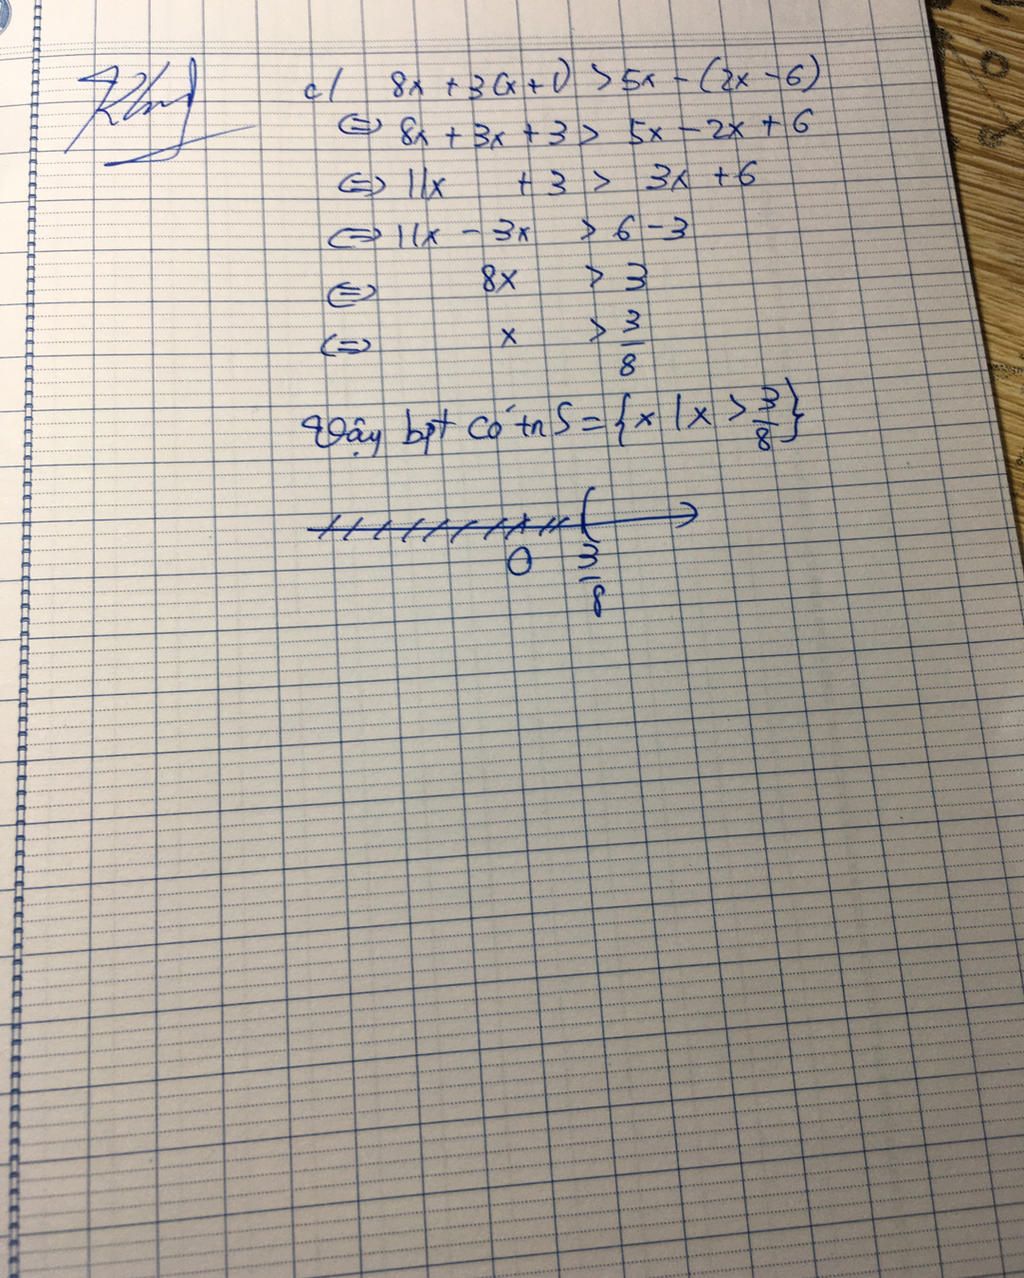 c/ 8x + 3(x+1) > 5x - (2x - 6)
⇔ 8x + 3x + 3 > 5x - 2x + 6
⇔ 11x + 3 > 3x + 6
⇔ 11x - 3x > 6 - 3
⇔ 8x > 3
⇔ x > 3/8
Vậy bpt có tn S = {x | x > 3/8}
0 3/8